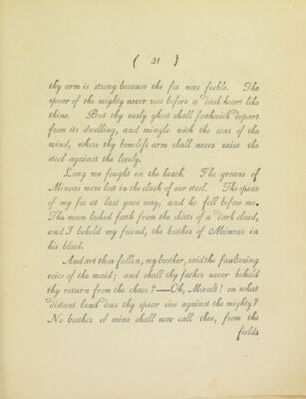 ( 31 )
thy arm is strong because the foe was feeble. The
spear of the mighty never rose before a dark heart like
thine. But thy surly ghost shall forthwith depart
from its dwelling, and mingle with the sons of the
wind, where thy boneless arm shall never raise the
steel against the lovely.
Long we fought on the heath. The groans of
Minvas were lost in the clash of our steel. The spear
of my foe at last gave way, and he fell before me.
The moon looked forth from the skirts of a dark cloud,
and I beheld my friend, the brother of Minvas in
his blood.
And art thou fallen, my brother, said the faultering
voice of the maid; and shall thy father never behold
thy return from the chace?—Oh, Moralt! on what
distant land does thy spear rise against the mighty?
No brother of mine shall now call thee, from the
fields